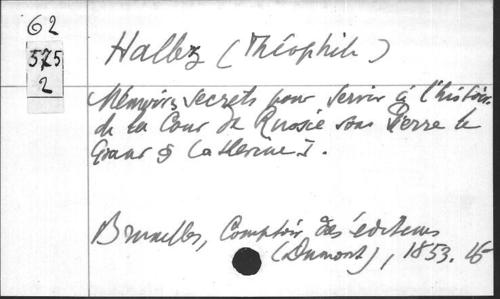 62
575
2
Hallez (Théophile)
Mémoires secrets pour servir à l'histoire
de la Cour de Russie sous Pierre le
Grand & Catherine I.
Bruxelles, Comptoir des éditeurs
(Dumont), 1853. 16